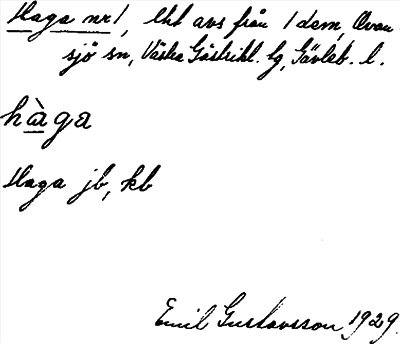 Haga nr 1, lht avs från 1 dem, Ovan-
sjö sn, Västra Gästrikl. hg, Gävleb. l.
hàga
Haga jb, kb
Emil Gustavsson 1929.